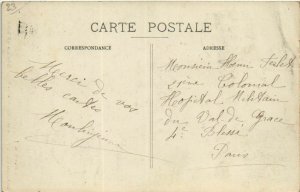 CARTE POSTALE
CORRESPONDANCE
ADRESSE
Merci de vos
belles cartes
Monsieur Henri
Colonial
Hopital Militaire
du Val de Grace
4e Blessé
Paris